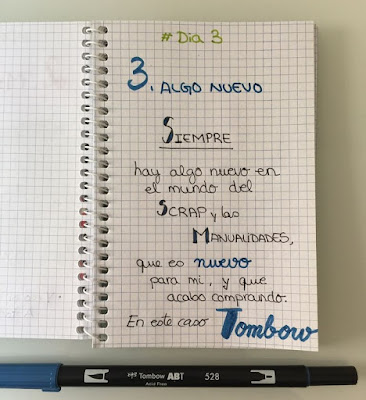 # Dia 3
3. ALGO NUEVO
SIEMPRE
hay algo nuevo en
el mundo del
SCRAP y las
MANUALIDADES,
que es nuevo
para mi, y que
acabo comprando.
En este caso Tombow
Tombow ABT 528
Acid Free